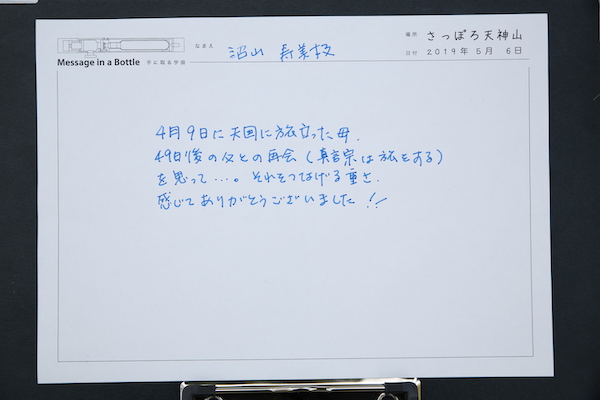 なまえ 沼山 寿美枝
場所 さっぽろ天神山
日付 2019年 5月 6日
Message in a Bottle 手に取る宇宙
4月9日に天国に旅立った母.
49日後の父との再会(真言宗は旅をする)
を思って…。それをつなげる重さ.
感じてありがとうございました!!